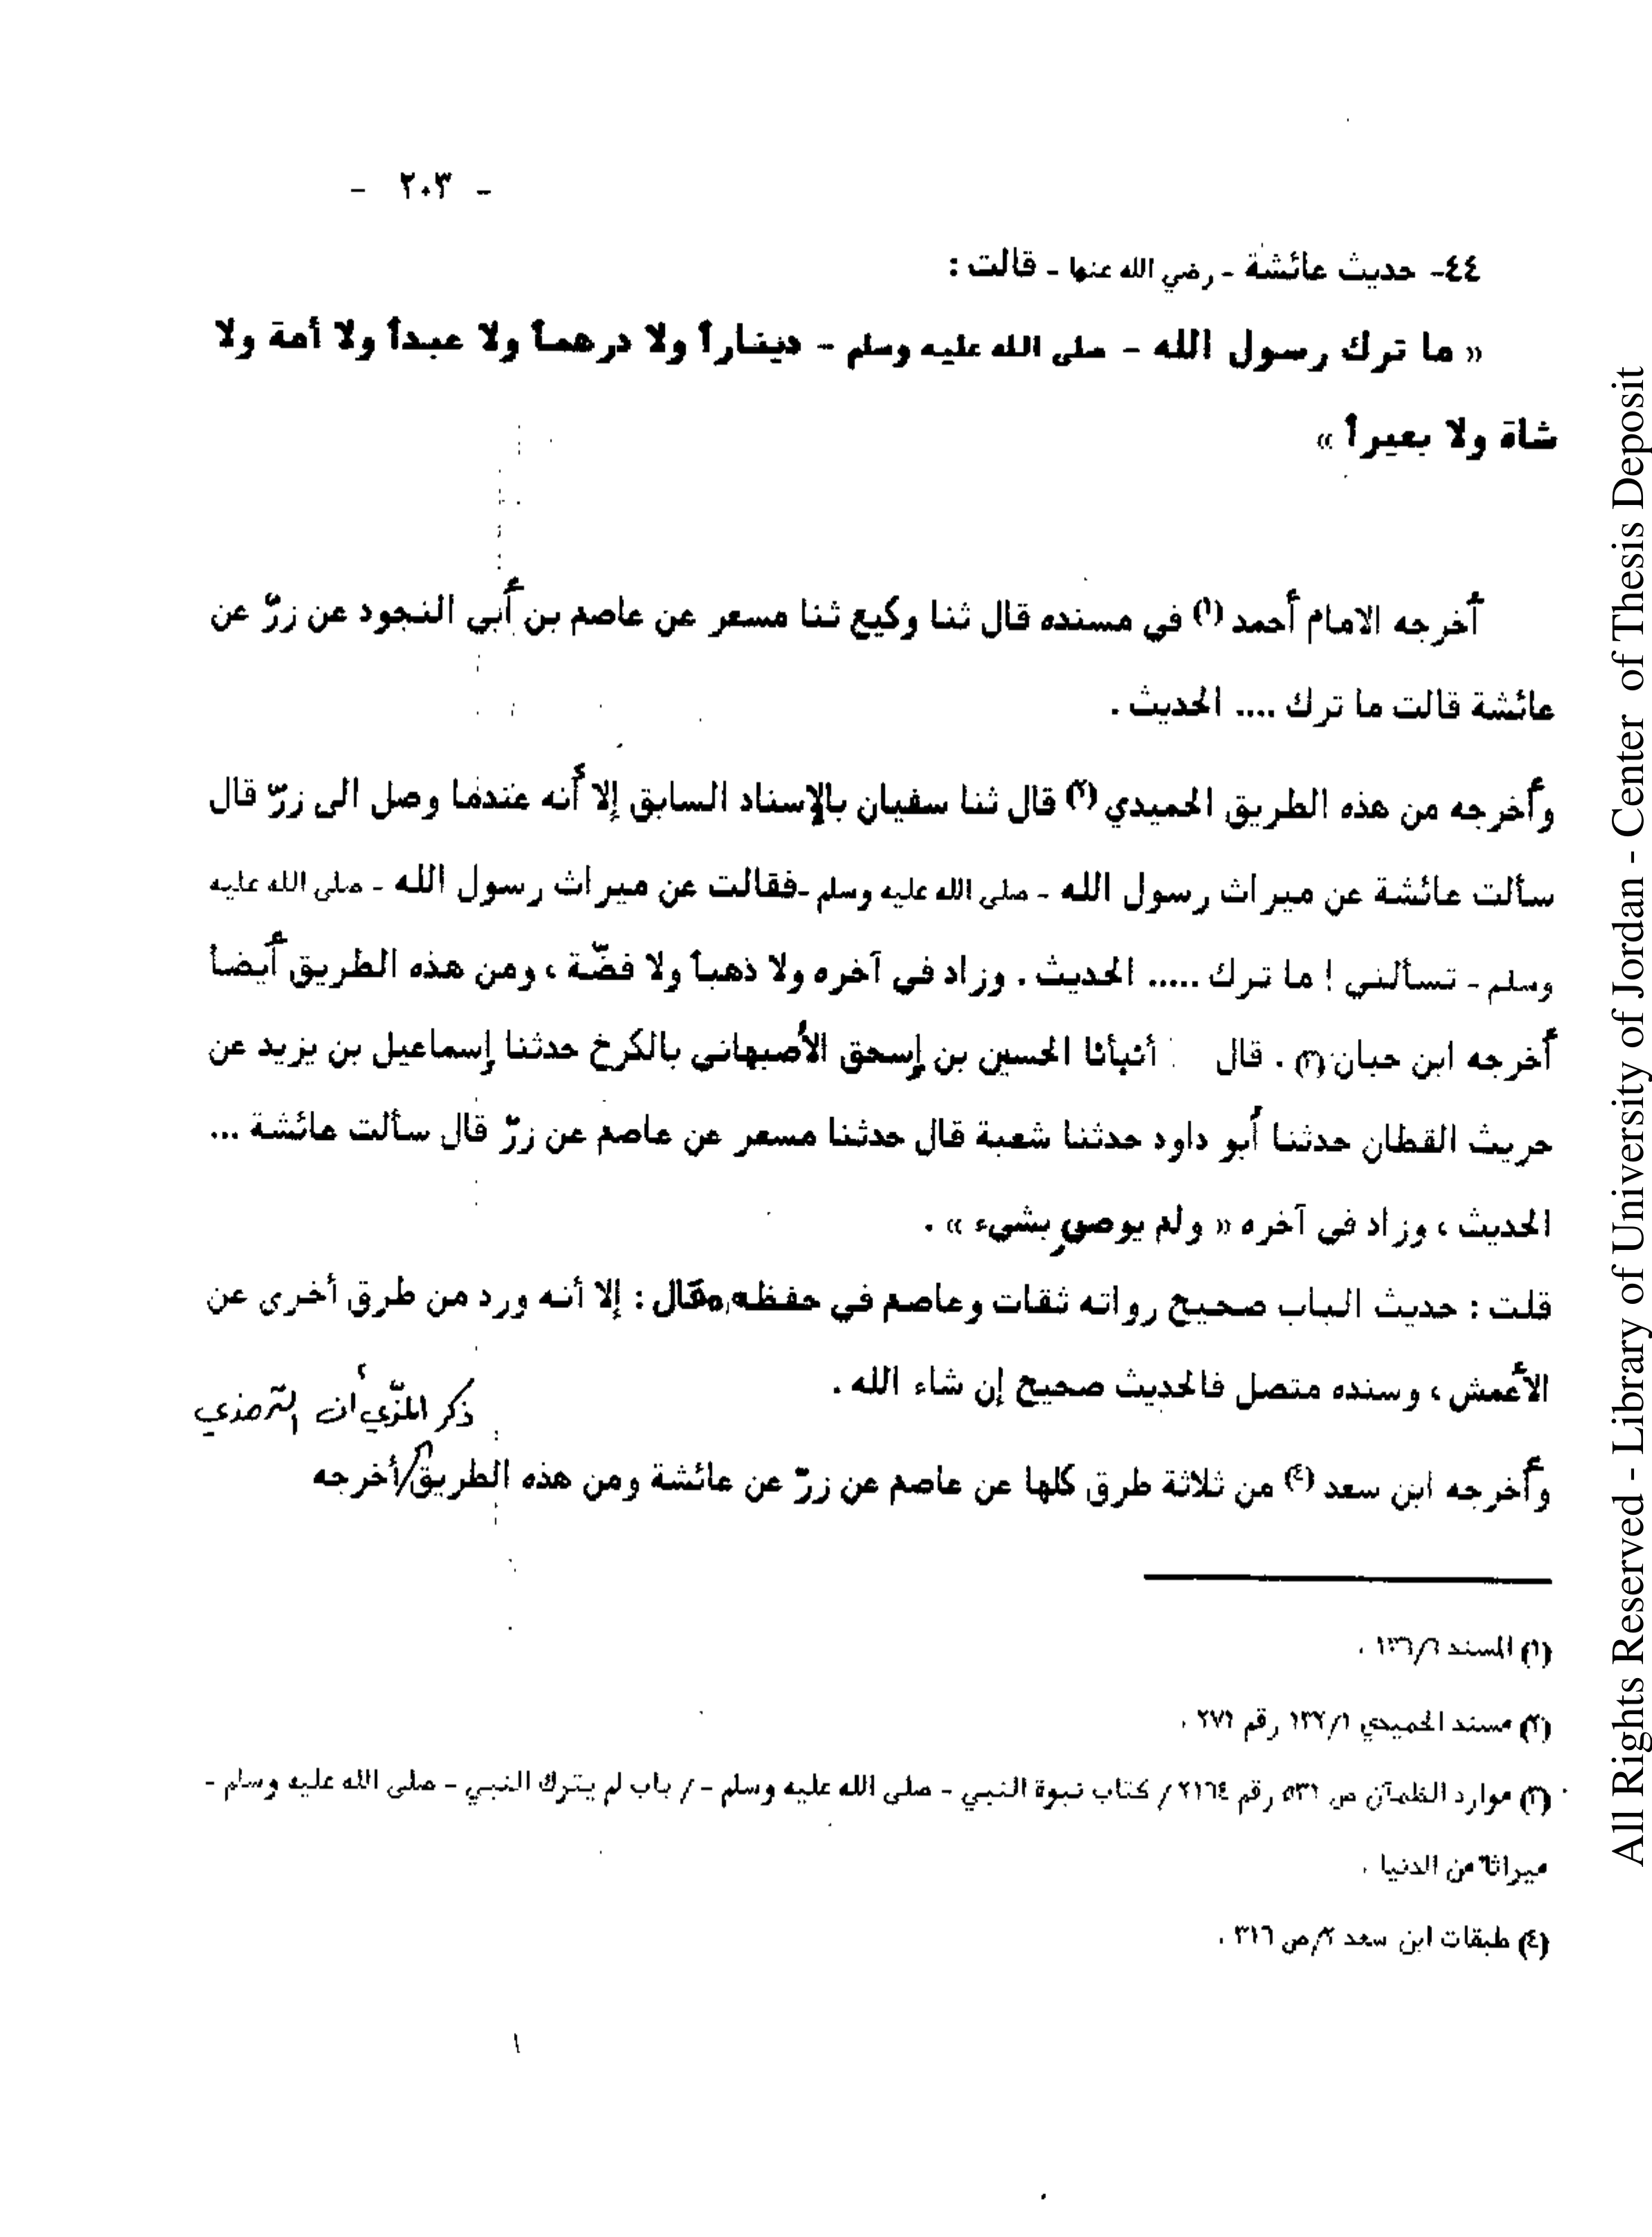 - ٢٠٣ -
٤٤- حديث عائشة - رضي الله عنها - قالت :
« ما ترك رسول الله - صلى الله عليه وسلم - ديناراً ولا درهماً ولا عبداً ولا أمة ولا
شاة ولا بعيراً »
أخرجه الامام أحمد (١) في مسنده قال ثنا وكيع ثنا مسعر عن عاصم بن أبي النجود عن زرّ عن
عائشة قالت ما ترك .... الحديث .
وأخرجه من هذه الطريق الحميدي (٢) قال ثنا سفيان بالإسناد السابق إلا أنه عندما وصل الى زرّ قال
سألت عائشة عن ميراث رسول الله - صلى الله عليه وسلم -فقالت عن ميراث رسول الله - صلى الله عليه
وسلم - تسألني ! ما ترك ..... الحديث . وزاد في آخره ولا ذهباً ولا فضّة ، ومن هذه الطريق أيضاً
أخرجه ابن حبان (٣) . قال أنبأنا الحسين بن إسحق الأصبهاني بالكرخ حدثنا إسماعيل بن يزيد عن
حريث القطان حدثنا أبو داود حدثنا شعبة قال حدثنا مسعر عن عاصم عن زرّ قال سألت عائشة ...
الحديث ، وزاد في آخره « ولم يوصِ بشيء » .
قلت : حديث الباب صحيح رواته ثقات وعاصم في حفظه مقال : إلا أنه ورد من طرق أخرى عن
الأعمش ، وسنده متصل فالحديث صحيح إن شاء الله .
ذكر المزّي أن الترمذي
وأخرجه ابن سعد (٤) من ثلاثة طرق كلها عن عاصم عن زرّ عن عائشة ومن هذه الطريق / أخرجه
(١) المسند ١٣٦/٦ .
(٢) مسند الحميدي ١٣٢/١ رقم ٢٧١ .
(٣) موارد الظمآن ص ٥٣١ رقم ٢١٦٤ / كتاب نبوة النبي - صلى الله عليه وسلم - / باب لم يترك النبي - صلى الله عليه وسلم -
ميراثاً من الدنيا .
(٤) طبقات ابن سعد ٢/ص ٣١٦ .
All Rights Reserved - Library of University of Jordan - Center of Thesis Deposit